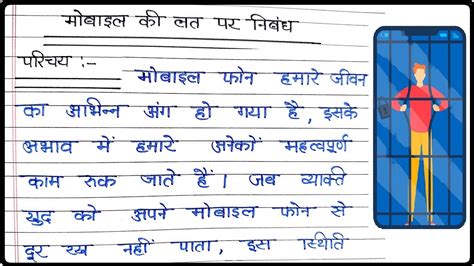 मोबाइल की लत पर निबंध
परिचय :-
मोबाइल फोन हमारे जीवन
का अभिन्न अंग हो गया है, इसके
अभाव में हमारे अनेकों महत्वपूर्ण
काम रुक जाते हैं। जब व्यक्ति
खुद को अपने मोबाइल फोन से
दूर रख नहीं पाता, इस स्थिति